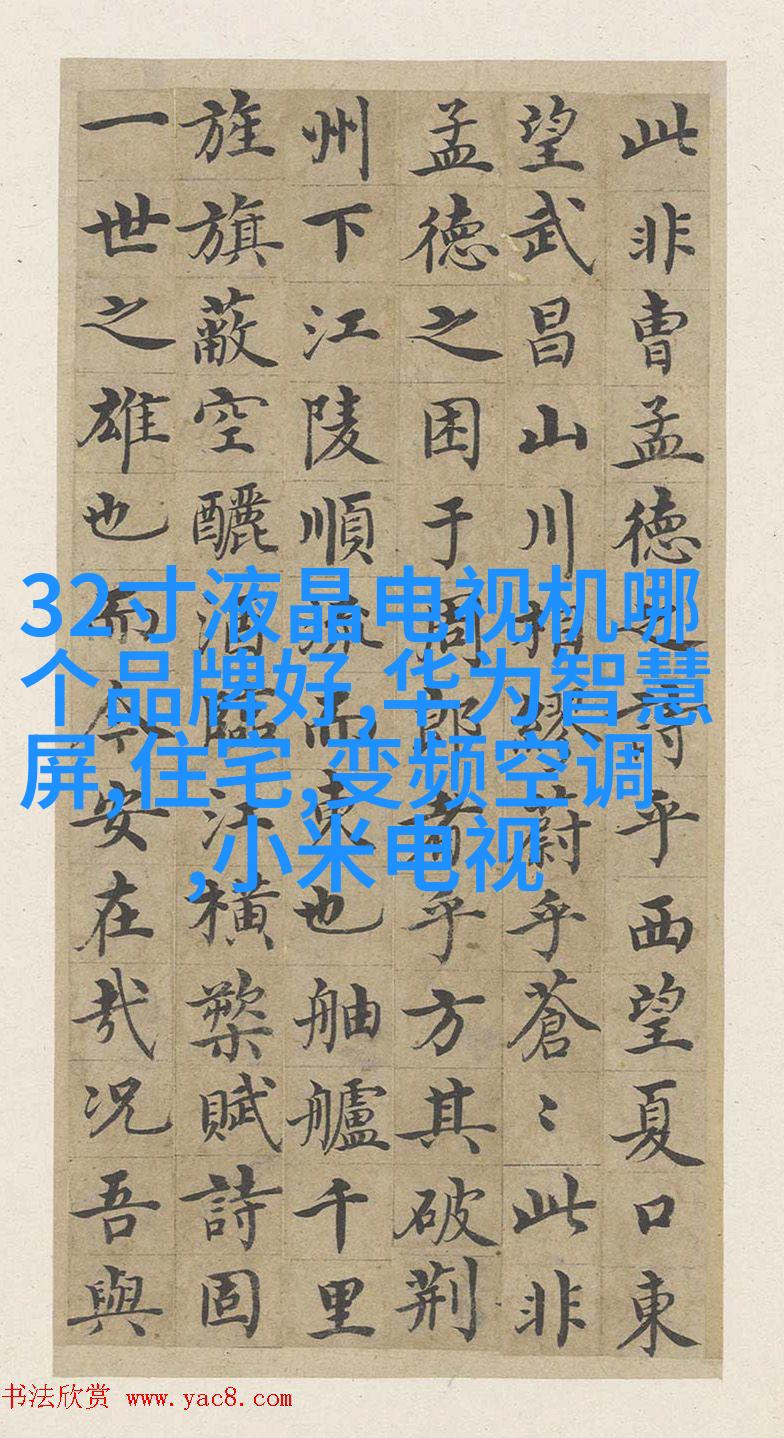 此非曹孟德之詩乎西望夏口東
望武昌山川相繆蔚乎蒼〻此非
孟德之困于周郎者乎方其破荆
州下江陵順流而東也舳艫千里
旌旗蔽空釃酒臨江橫槊賦詩固
一世之雄也而今安在哉况吾與
32寸液晶电视机哪
个品牌好,华为智慧
屏,住宅,变频空调
,小米电视
书法欣赏 www.yac8.com